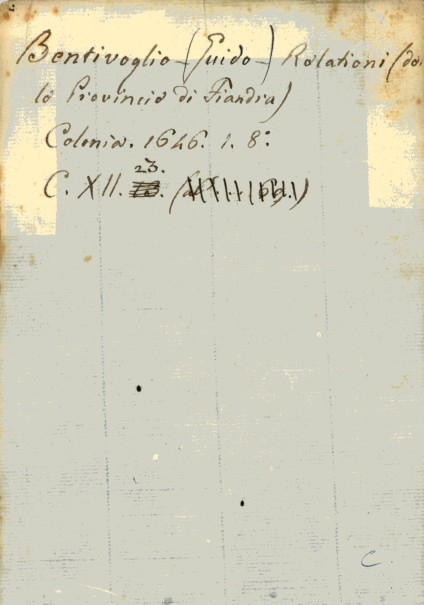 Bentivoglio (Guido) Relationi (del
lo Provincie di Fiandra)
Colonia. 1646. 1. 8º
23.
C. XII.
C